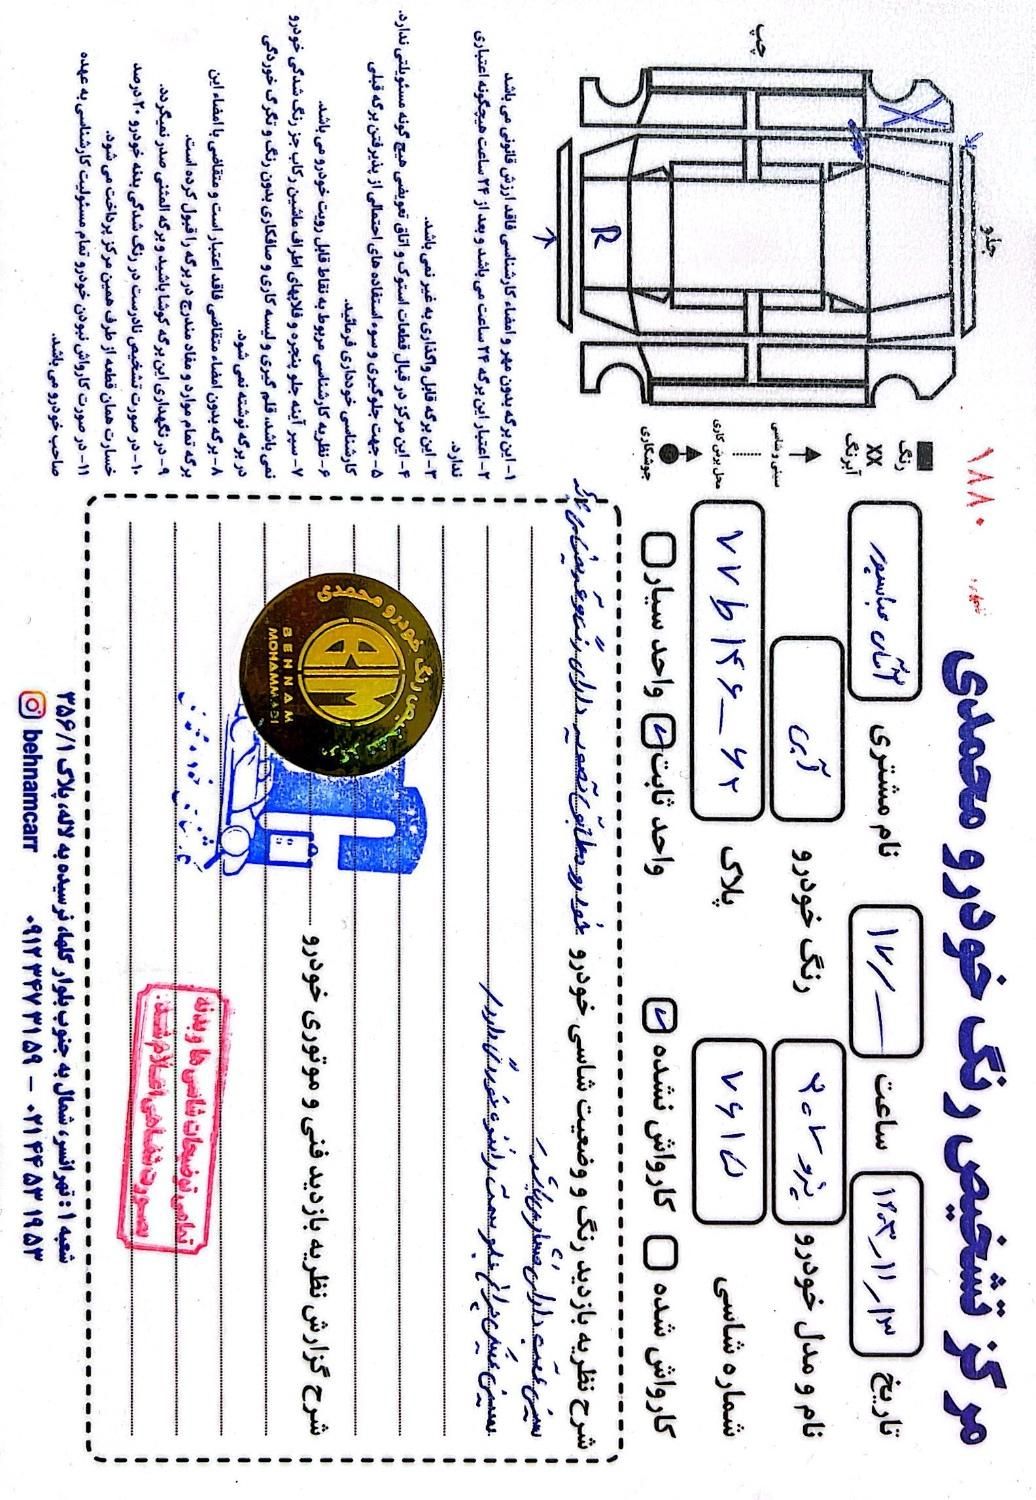 مرکز تشخیص رنگ خودرو محمدی
شماره
۱۸۸۰
تاریخ
۱۴۰۳-۱۱-۱۳
ساعت
۱۷/
نام مشتری
آقای عباسپور
نام و مدل خودرو
پژو ۲۰۷
رنگ خودرو
آبی
شماره شاسی
۷۶۱۵
پلاک
۷۷ط۱۴۶-۶۲
کارواش شده
کارواش نشده
واحد ثابت
واحد سیار
رنگ
XX آبرنگ
سینی و شاسی
محل برش کاری
جوشکاری
جلو
چپ
X
R
شرح نظریه بازدید رنگ و وضعیت شاسی خودرو خودرو مطابق تصویر دارای رنگ و تعویض
سینی عقب دارای
سینی جلو سمت راننده خوردگی دارد
شرح گزارش نظریه بازدید فنی و موتوری خودرو
تشخیص رنگ خودرو محمدی
BM
BEHNAM
MOHAMMADI
تمامی توضیحات شاسی ها و بدنه
بصورت شفاهی اعلام شد.
۱- این برگه بدون مهر و امضاء کارشناسی فاقد ارزش قانونی می باشد
۲- اعتبار این برگه ۲۴ ساعت می باشد و بعد از ۲۴ ساعت هیچگونه اعتباری
ندارد.
۳- این برگه قابل واگذاری به غیر نمی باشد.
۴- این مرکز در قبال قطعات استوک و اتاق تعویضی هیچ گونه مسئولیتی ندارد.
۵- جهت جلوگیری و سوء استفاده های احتمالی از پذیرفتن برگه قبلی
کارشناسی خودداری فرمائید.
۶- نظریه کارشناسی مربوط به نقاط قابل رویت خودرو می باشد.
۷- سپر آینه جلو پنجره و قلابهای اطراف ماشین رکاب جز رنگ شدگی خودرو
نمی باشد، قلم گیری و لیسه کاری و صافکاری بدون رنگ و تگرگ خوردگی
در برگه نوشته نمی شود.
۸- برگه بدون امضاء متقاضی فاقد اعتبار است و متقاضی با امضاء این
برگه تمام موارد و مفاد مندرج در برگه را قبول کرده است.
۹- در نگهداری این برگه کوشا باشید و برگه المثنی صدر نمیگردد.
۱۰- در صورت تشخیص نادرست در رنگ شدگی بدنه خودرو ۲۰ درصد
خسارت همان قطعه از طرف همین مرکز پرداخت می شود.
۱۱- در صورت کارواش نبودن خودرو تمام مسئولیت کارشناسی به عهده
صاحب خودرو می باشد.
شعبه ۱: تهرانسر، شمال به جنوب بلوار گلها، نرسیده به لاله، پلاک ۳۵۶/۱
behnamcarr ۰۹۱۲ ۳۴۷ ۳۱ ۵۹ - ۰۲۱ ۴۴ ۵۳ ۱۹ ۵۳